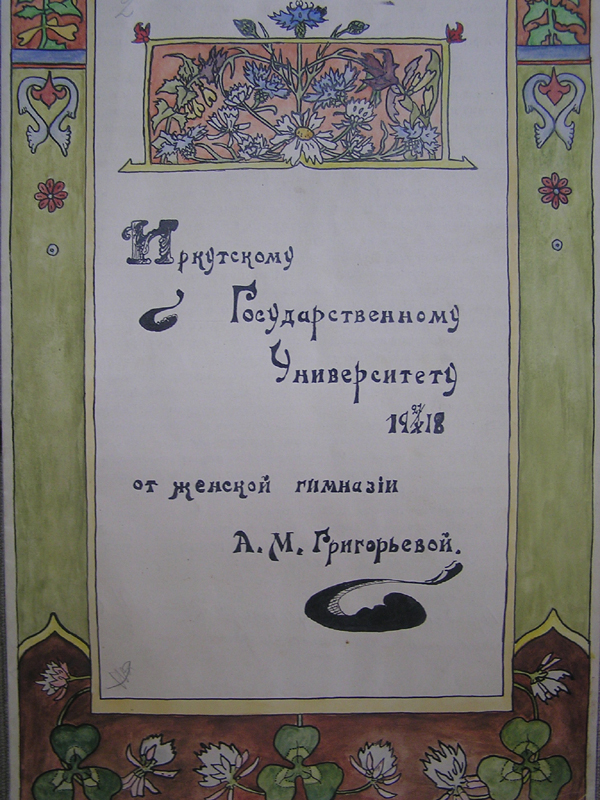 Иркутскому
Государственному
Университету
19 18
от женской гимназіи
А. М. Григорьевой.